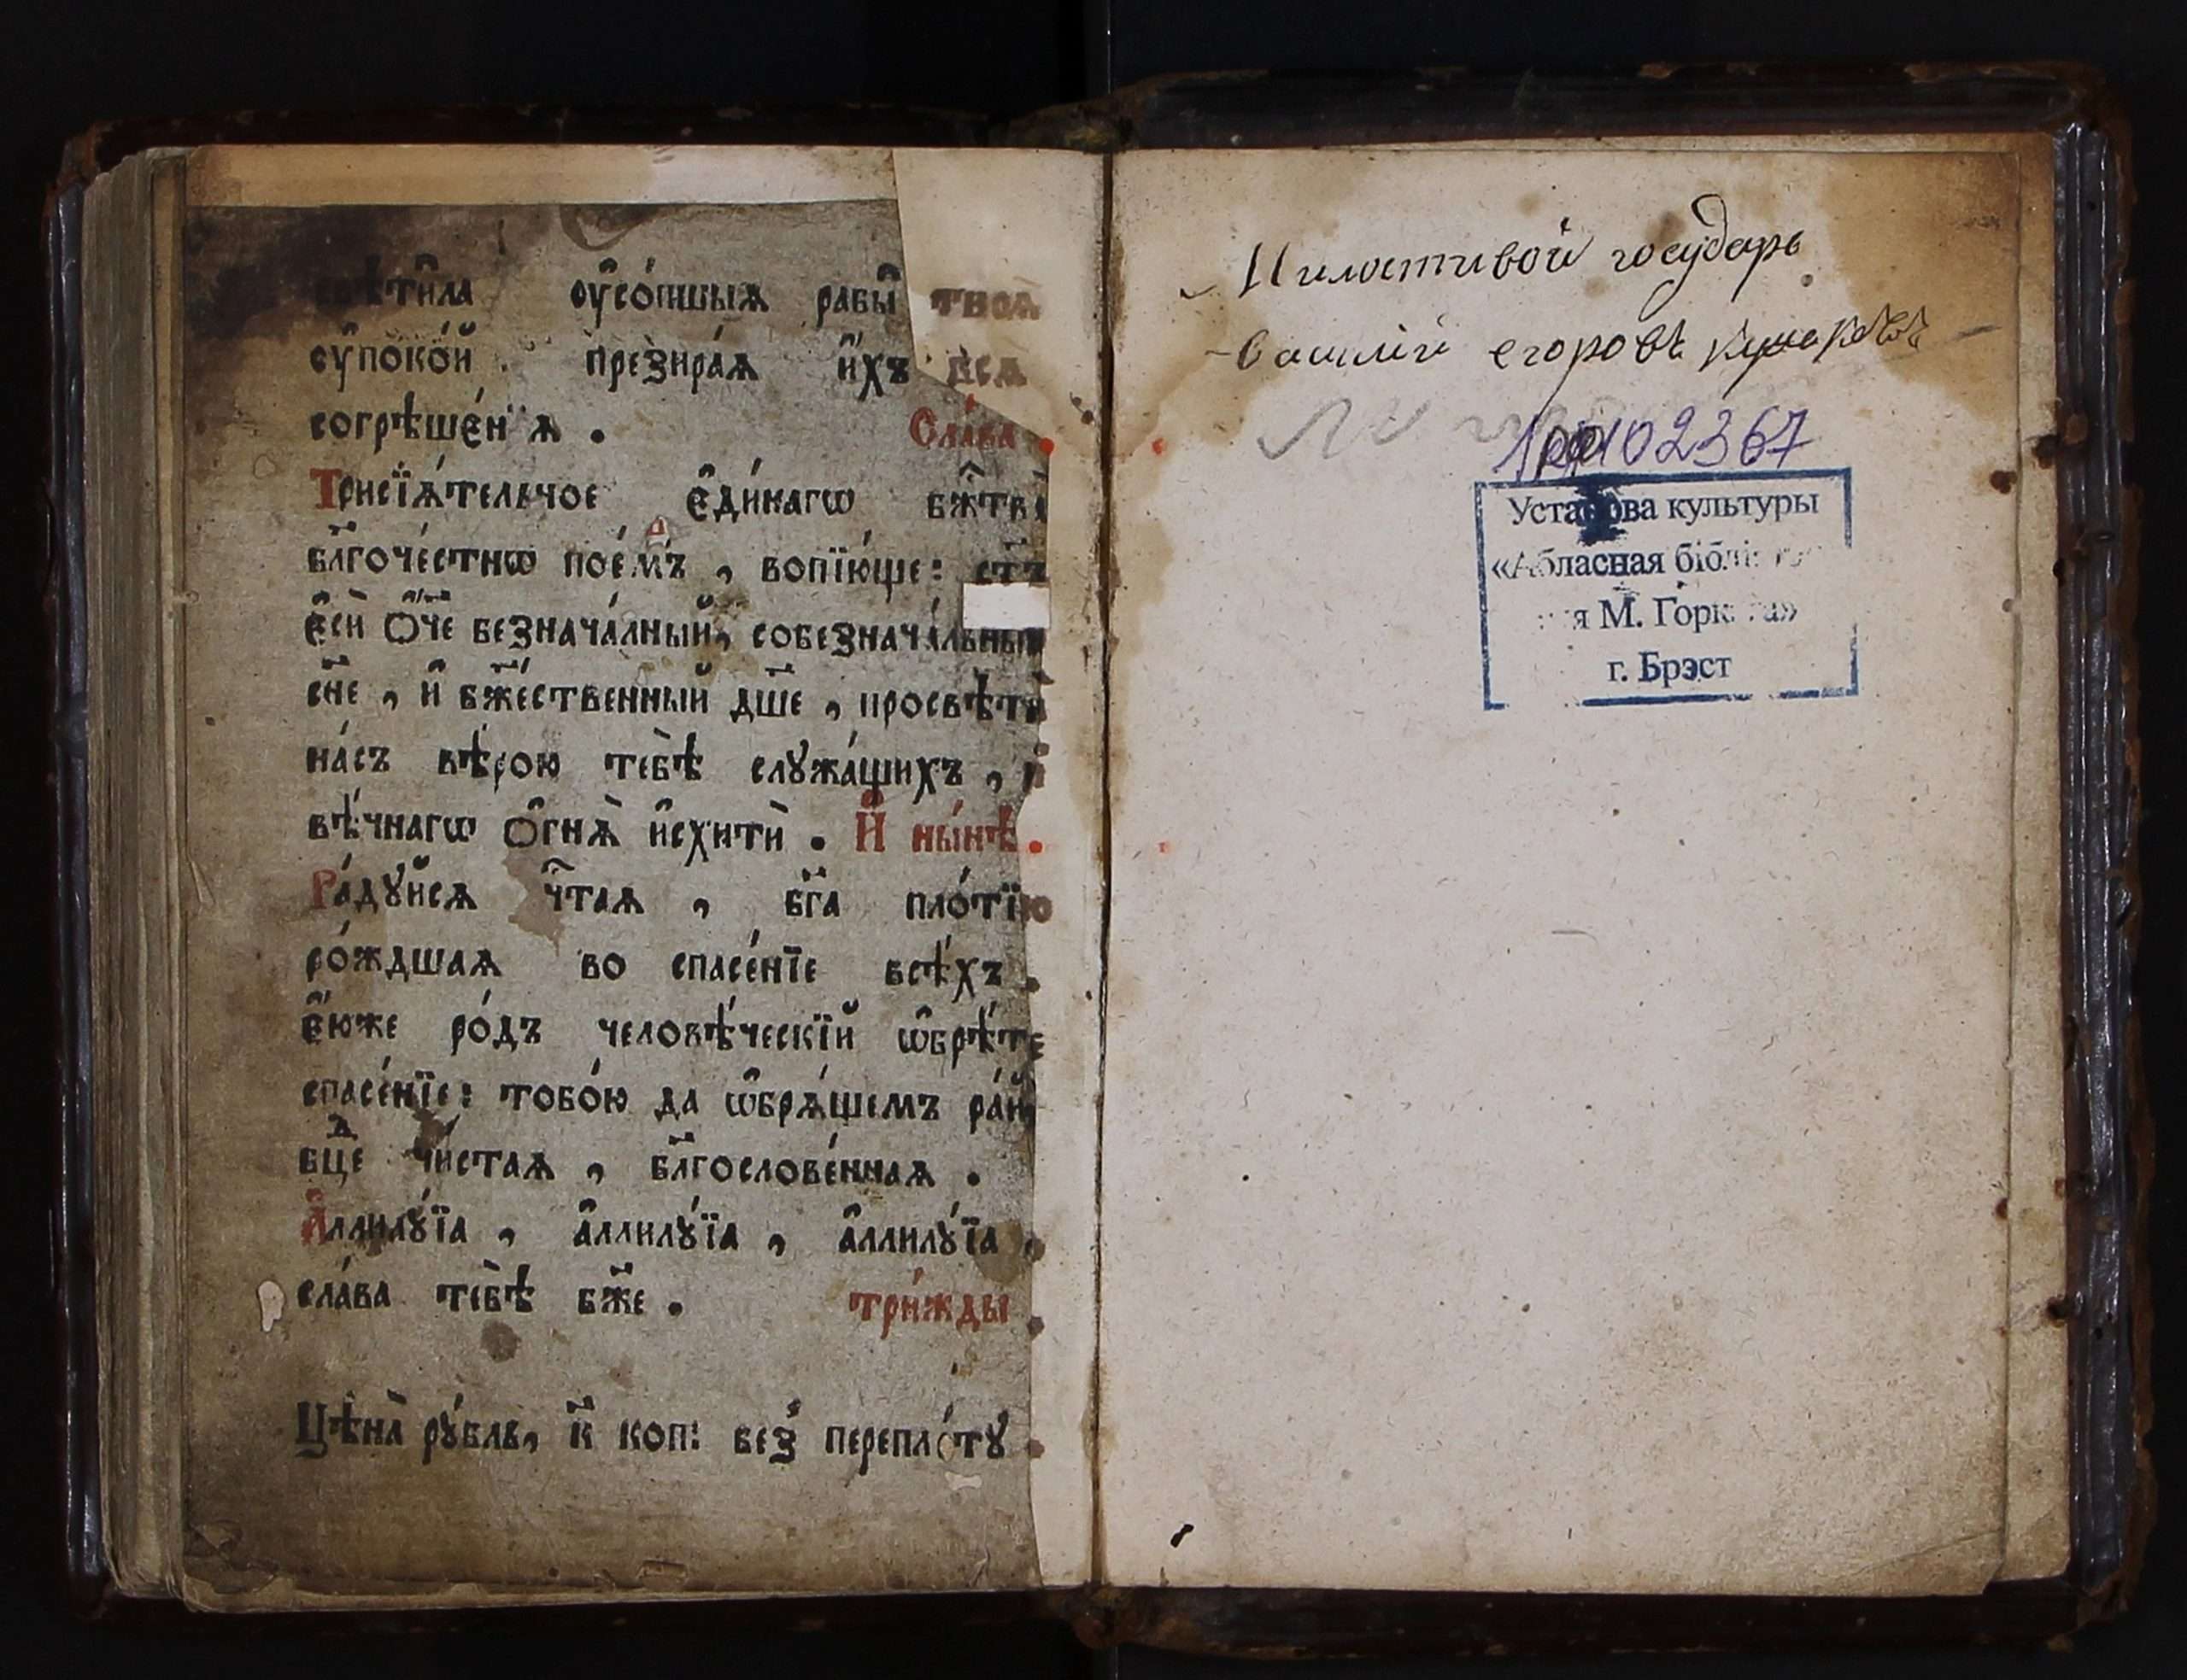 свѣти́ла ᲂу҆со́пшыѧ рабы̀ твоѧ̀
ᲂу҆поко́й . презира́ѧ и҆́хъ всѧ̑
согрѣшє́нїѧ . Сла́ва .
Трисїѧ́тельное є҆ди́нагѡ бж҃тва̀
бл҃гоче́стнѡ пое́мъ , вопїю́ще: ст҃ъ
є҆сѝ Ѻ҆́ч҃е безнача́лный, собезнача́льный
сн҃е , и҆ бж҃е́ственный дш҃е , просвѣтѝ
на́съ вѣ́рою тебѣ̀ слꙋжа́щихъ , и҆
вѣ́чнагѡ ѻ҆гнѧ̀ и҆схитѝ . И҆ ны́нѣ .
Ра́дꙋйсѧ чⷭ҇таѧ , бг҃а пло́тїю
ро́ждшаѧ во спасе́нїе всѣ́хъ .
є҆́юже ро́дъ человѣ́ческїй ѡ҆брѣ́те
спасе́нїе: тобо́ю да ѡ҆брѧ́щемъ ра́й,
бцⷣе чи́стаѧ , бл҃гослове́ннаѧ .
А҆ллилꙋ́їа , а҆ллилꙋ́їа , а҆ллилꙋ́їа ,
сла́ва тебѣ̀ бж҃е . три́жды .
Цѣна̀ рꙋ́бль, к҃ коп: без̾ перепле́тꙋ .
Милостивой государь
василий егоровъ
102367
Установа культуры
«Абласная бібліятэка
імя М. Горкага»
г. Брэст